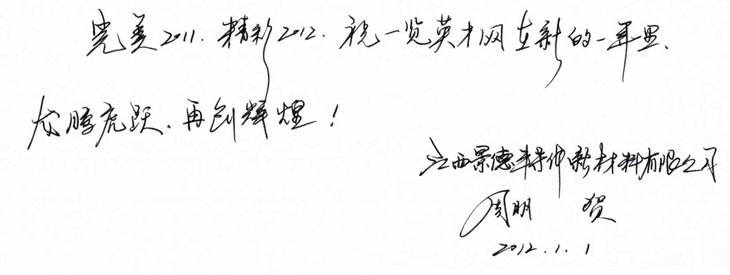 完美2011.精彩2012.祝一览英才网在新的一年里、
龙腾虎跃、再创辉煌！
江西景德半导体新材料有限公司
周明 贺
2012.1.1